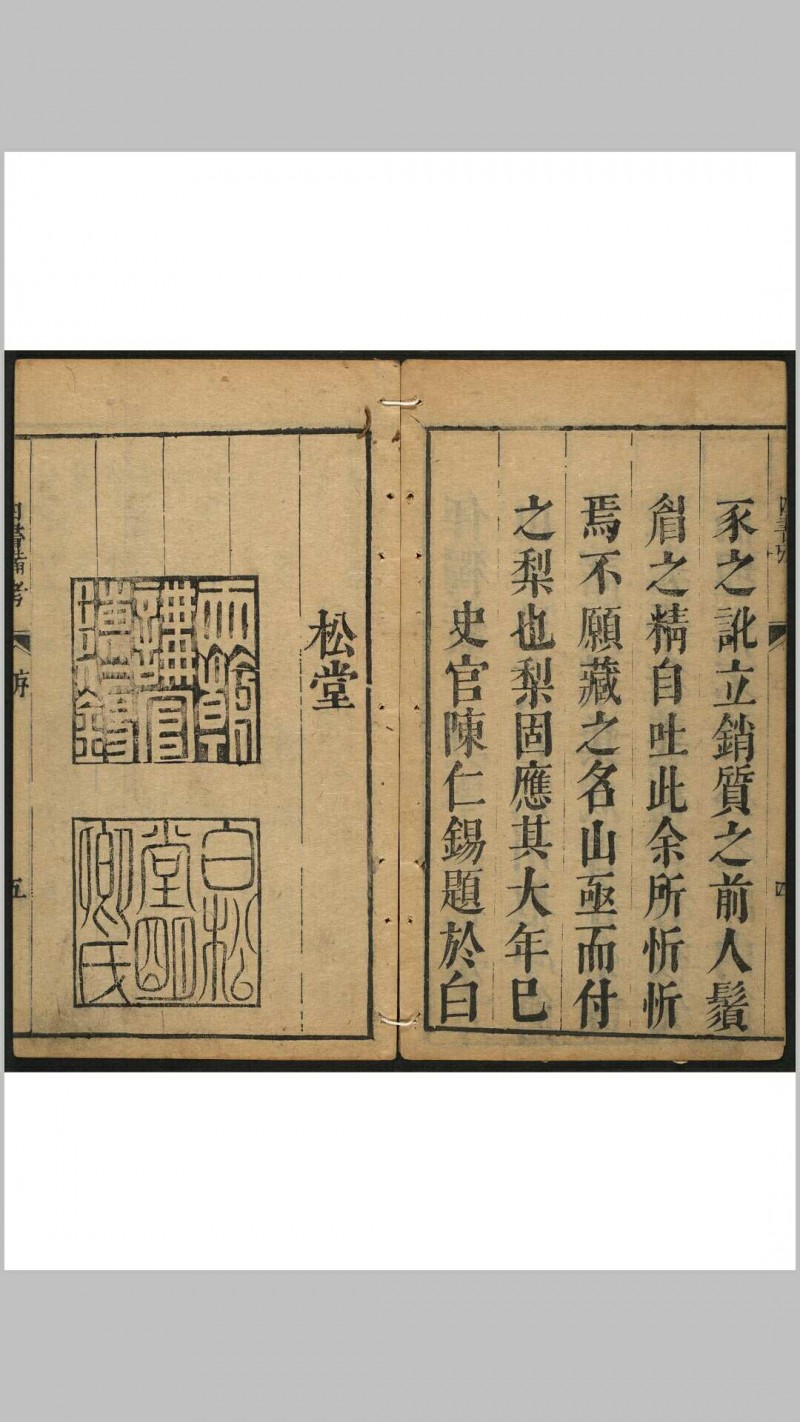 豕之訛立銷質之前人鬚
眉之精自吐此余所忻忻
焉不願藏之名山亟而付
之梨也梨固應其大年巳
史官陳仁錫題於白
松堂
白松
堂明
卿氏
四書備考
序
五
四